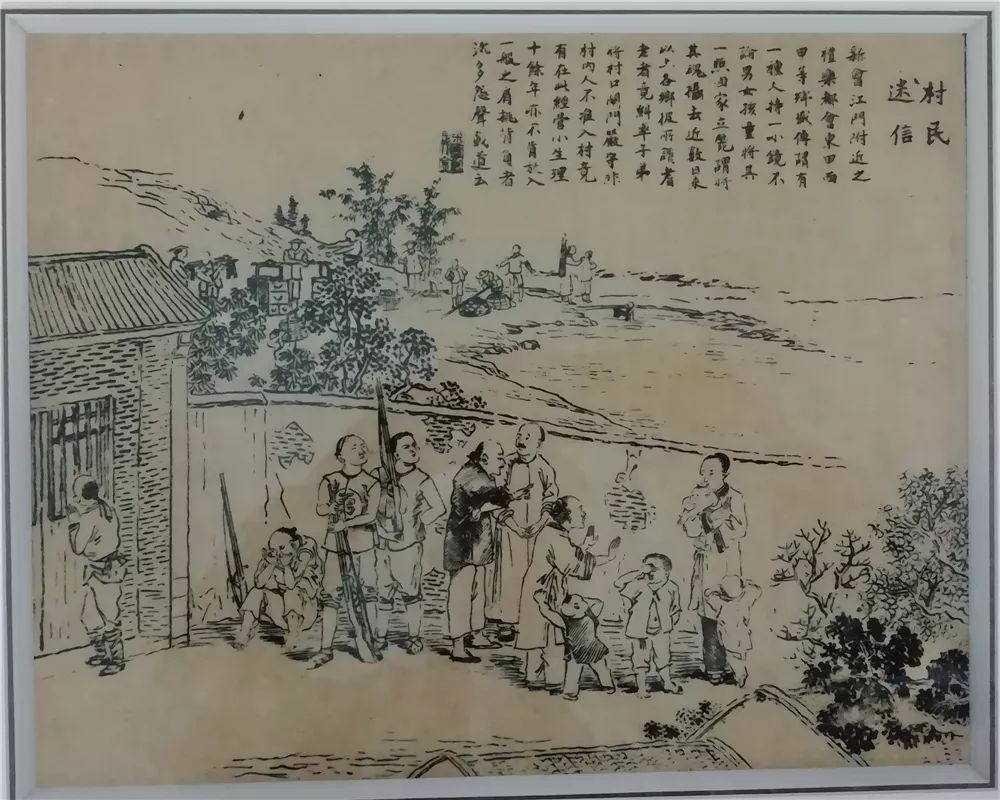 村民
迷信
新會江門附近之
禮樂都會東甲西
甲等鄉盛傳謂有
一種人持一小鏡不
論男女孩童將其
一照回家立斃謂將
其魂攝去近數日來
以上各鄉彼所謂耆
老者竟糾率子弟
將村口閘門嚴守非
村內人不准入村竟
有在此經營小生理
十餘年亦不肯放入
一般之肩挑背負者
沈多怨聲載道云